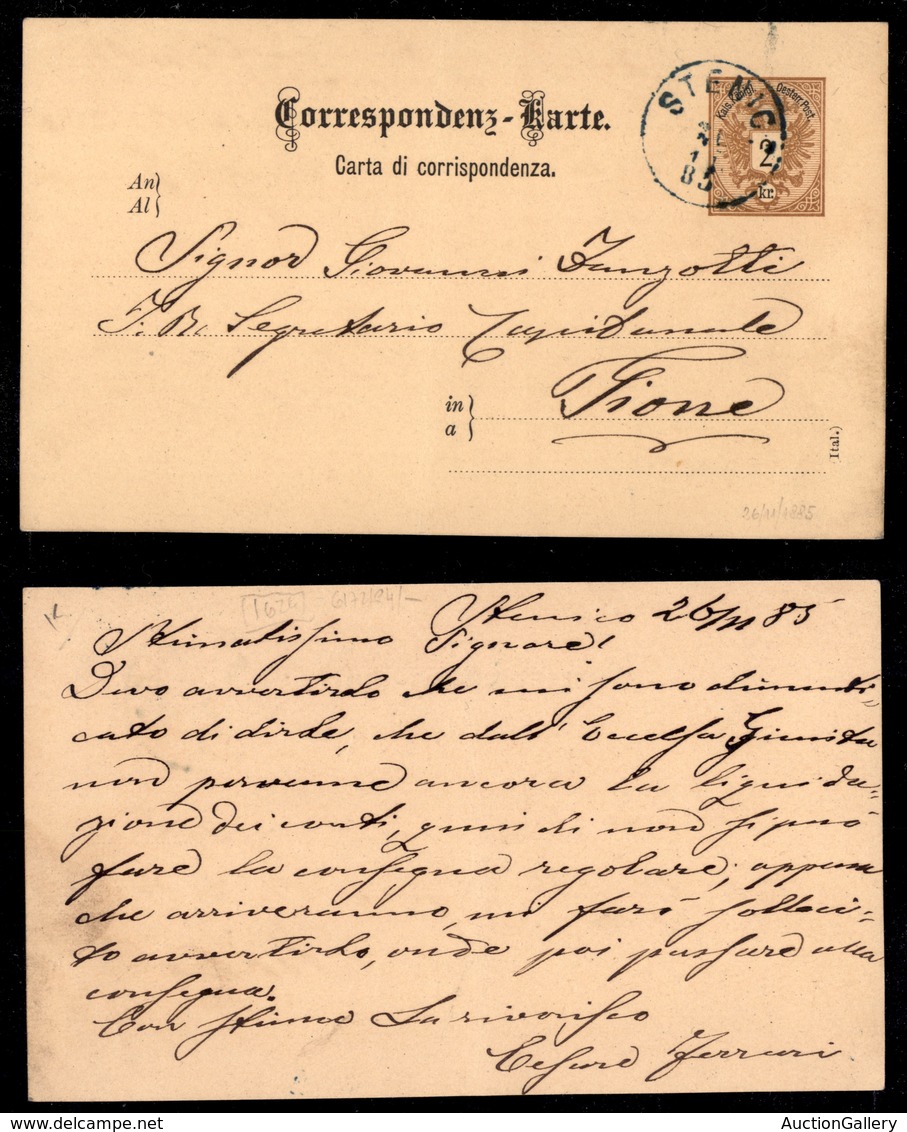 Correspondenz-Karte.
Carta di corrispondenza.
STENICO
85
Kais. Königl. Oesterr. Post.
2
kr.
An
Al
Signor Giovanni Zanzotti
I. R. Segretario Capitanale
in
a
Tione
(Ital.)
26/11/1885
1624 6172/24/-
Stenico 26/11 85
Stimatissimo Signore!
Devo avvertirlo che mi sono dimenti-
cato di dirle, che dall' Eccelsa Giunta
non pervenne ancora la liquida-
zione dei conti, quindi non si può
fare la consegna regolare; appena
che arriveranno, mi farò solleci-
to avvertirlo, onde poi passare alla
consegna.
Con stima La riverisco
Cesare Ferrari
AuctionGallery